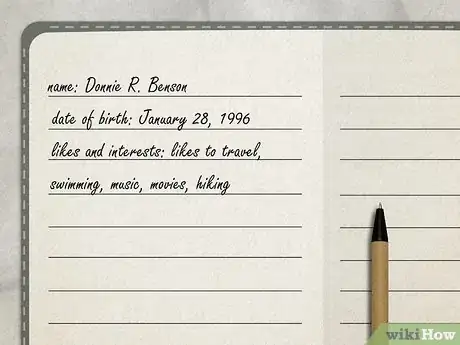 name: Donnie R. Benson
date of birth: January 28, 1996
likes and interests: likes to travel,
swimming, music, movies, hiking
wikiHow